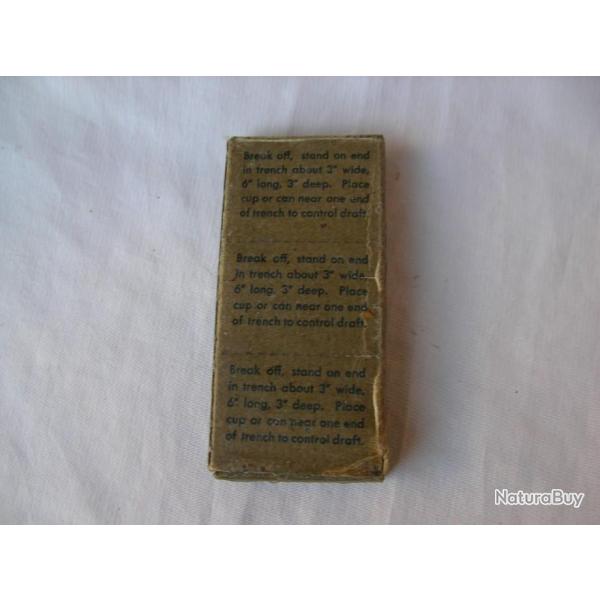 Break off, stand on end
in trench about 3" wide,
6" long, 3" deep. Place
cup or can near one end
of trench to control draft.
Break off, stand on end
in trench about 3" wide,
6" long, 3" deep. Place
cup or can near one end
of trench to control draft.
Break off, stand on end
in trench about 3" wide,
6" long, 3" deep. Place
cup or can near one end
of trench to control draft.
NaturaBuy